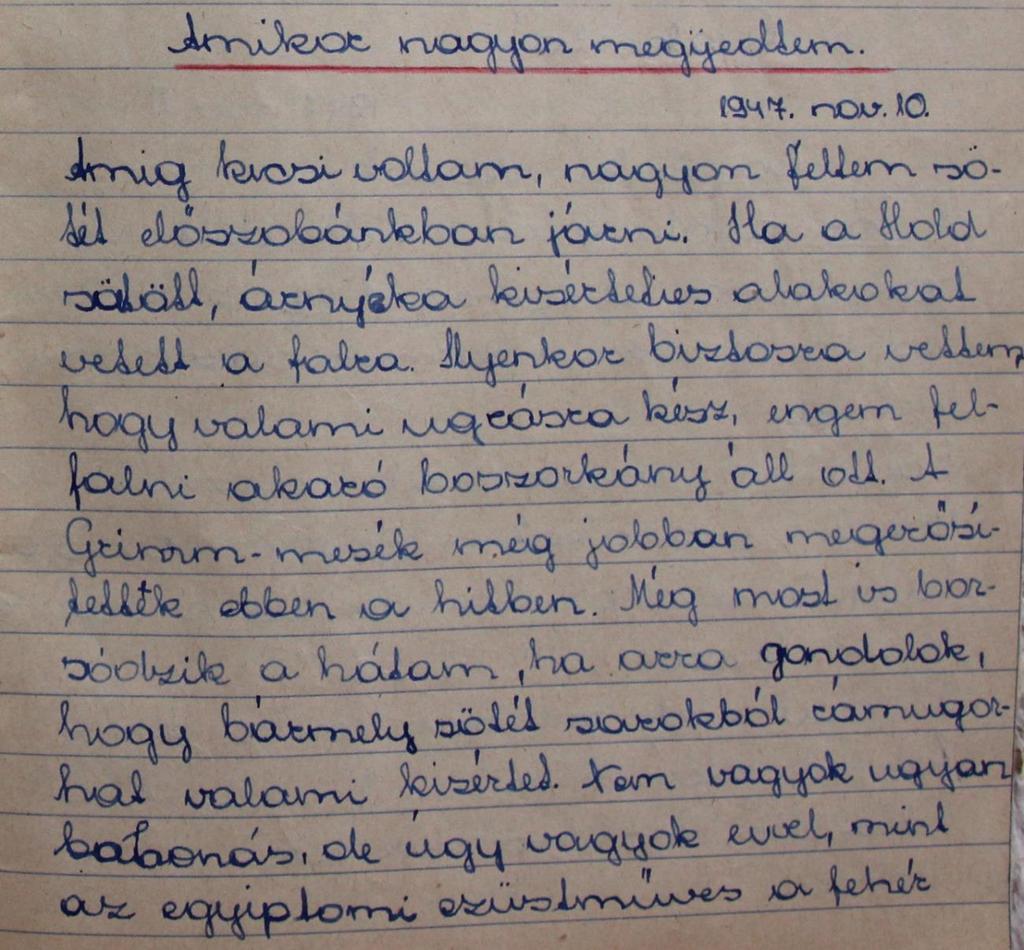 Amikor nagyon megijedtem.
1947. nov. 10.
Amig kicsi voltam, nagyon féltem sö-
tét előszobánkban járni. Ha a Hold
sütött, árnyéka kisérteties alakokat
vetett a falra. Ilyenkor biztosra vettem,
hogy valami ugrásra kész, engem fel-
falni akaró boszorkány áll ott. A
Grimm-mesék még jobban megerősi-
tettek ebben a hitben. Még most is bor-
sódzik a hátam, ha arra gondolok,
hogy bármely sötét sarokból rámugor-
hat valami kisértet. Nem vagyok ugyan
babonás, de úgy vagyok evvel, mint
az egyiptomi ezüstműves a fehér